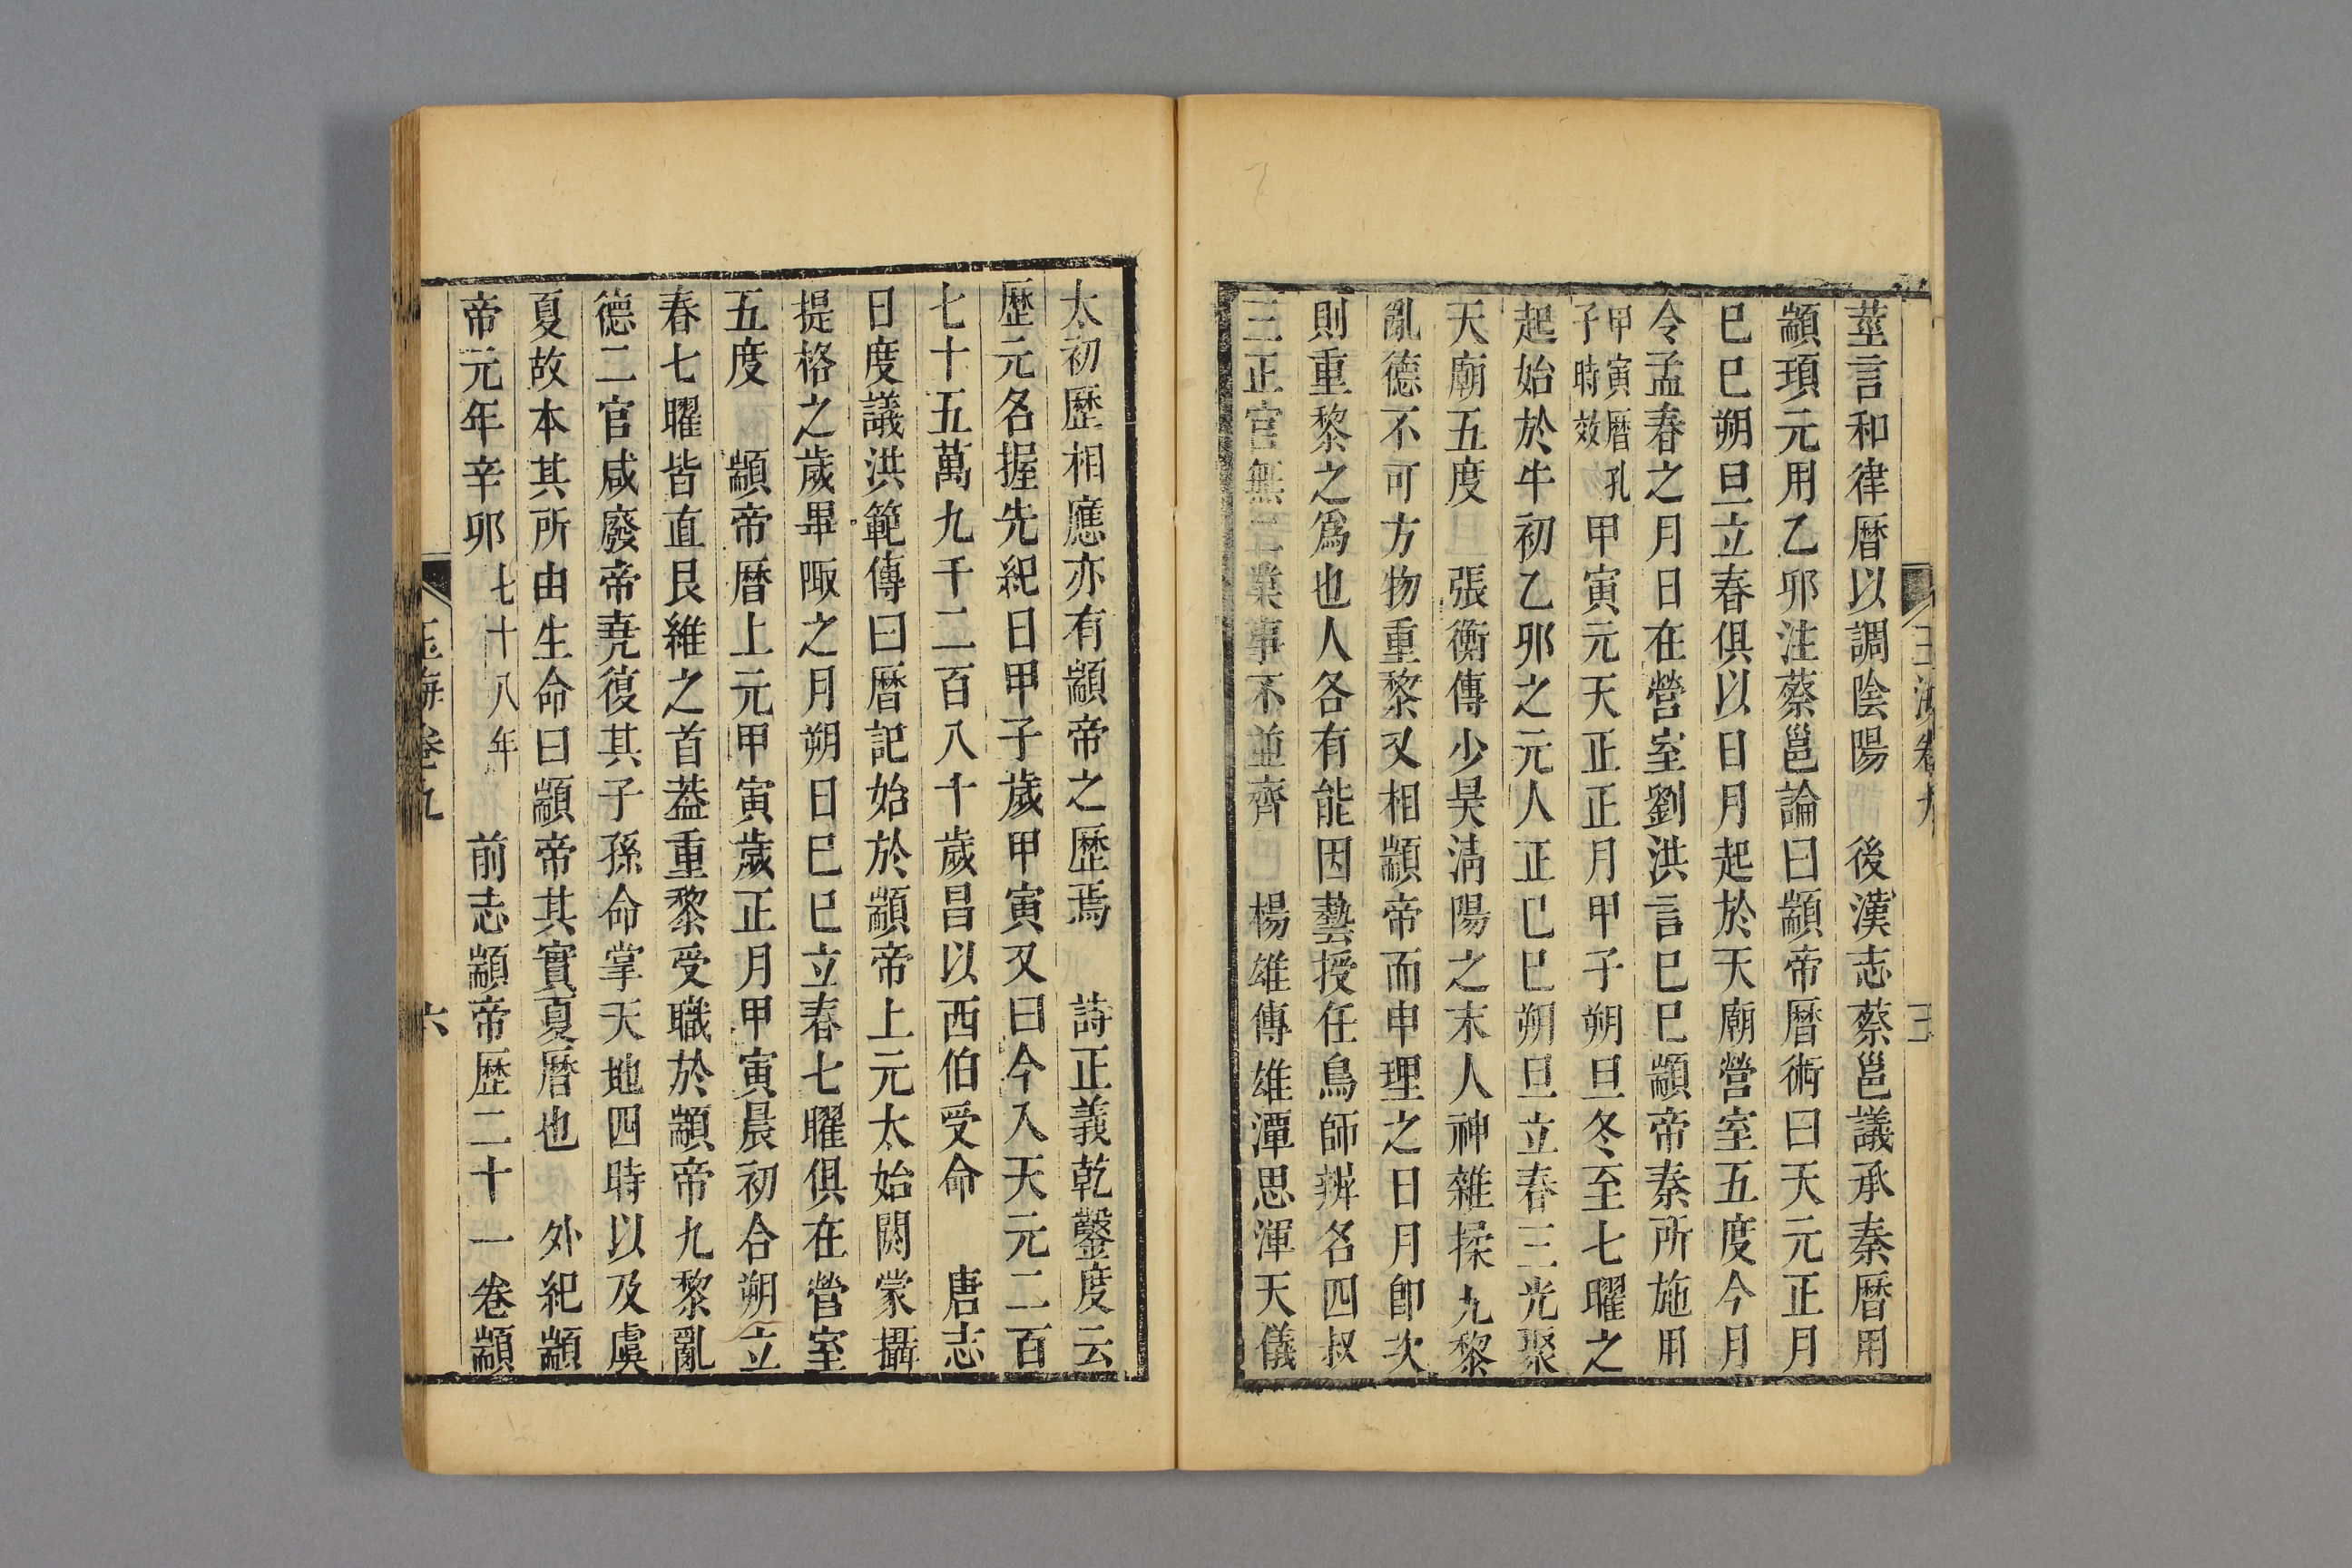 莖言和律曆以調陰陽 後漢志蔡邕議承秦曆用
顓頊元用乙卯注蔡邕論曰顓帝曆術曰天元正月
巳巳朔旦立春俱以日月起於天廟營室五度今月
令孟春之月日在營室劉洪言巳巳顓帝秦所施用
甲寅曆孔
子時效
甲寅元天正正月甲子朔旦冬至七曜之
起始於牛初乙卯之元人正巳巳朔旦立春三光聚
天廟五度 張衡傳少昊淸陽之末人神雜揉九黎
亂德不可方物重黎又相顓帝而申理之日月卽次
則重黎之爲也人各有能因藝授任鳥師辨名四叔
三正官無二業事不並齊 楊雄傳雄潭思渾天儀
太初歷相應亦有顓帝之歷焉 詩正義乾鑿度云
歷元名握先紀日甲子歲甲寅又曰今入天元二百
七十五萬九千二百八十歲昌以西伯受命 唐志
日度議洪範傳曰曆記始於顓帝上元太始閼蒙攝
提格之歲畢陬之月朔日巳巳立春七曜俱在營室
五度 顓帝曆上元甲寅歲正月甲寅晨初合朔立
春七曜皆直艮維之首葢重黎受職於顓帝九黎亂
德二官咸廢帝堯復其子孫命掌天地四時以及虞
夏故本其所由生命曰顓帝其實夏曆也 外紀顓
帝元年辛卯七十八年 前志顓帝歷二十一卷顓
玉海卷九 六